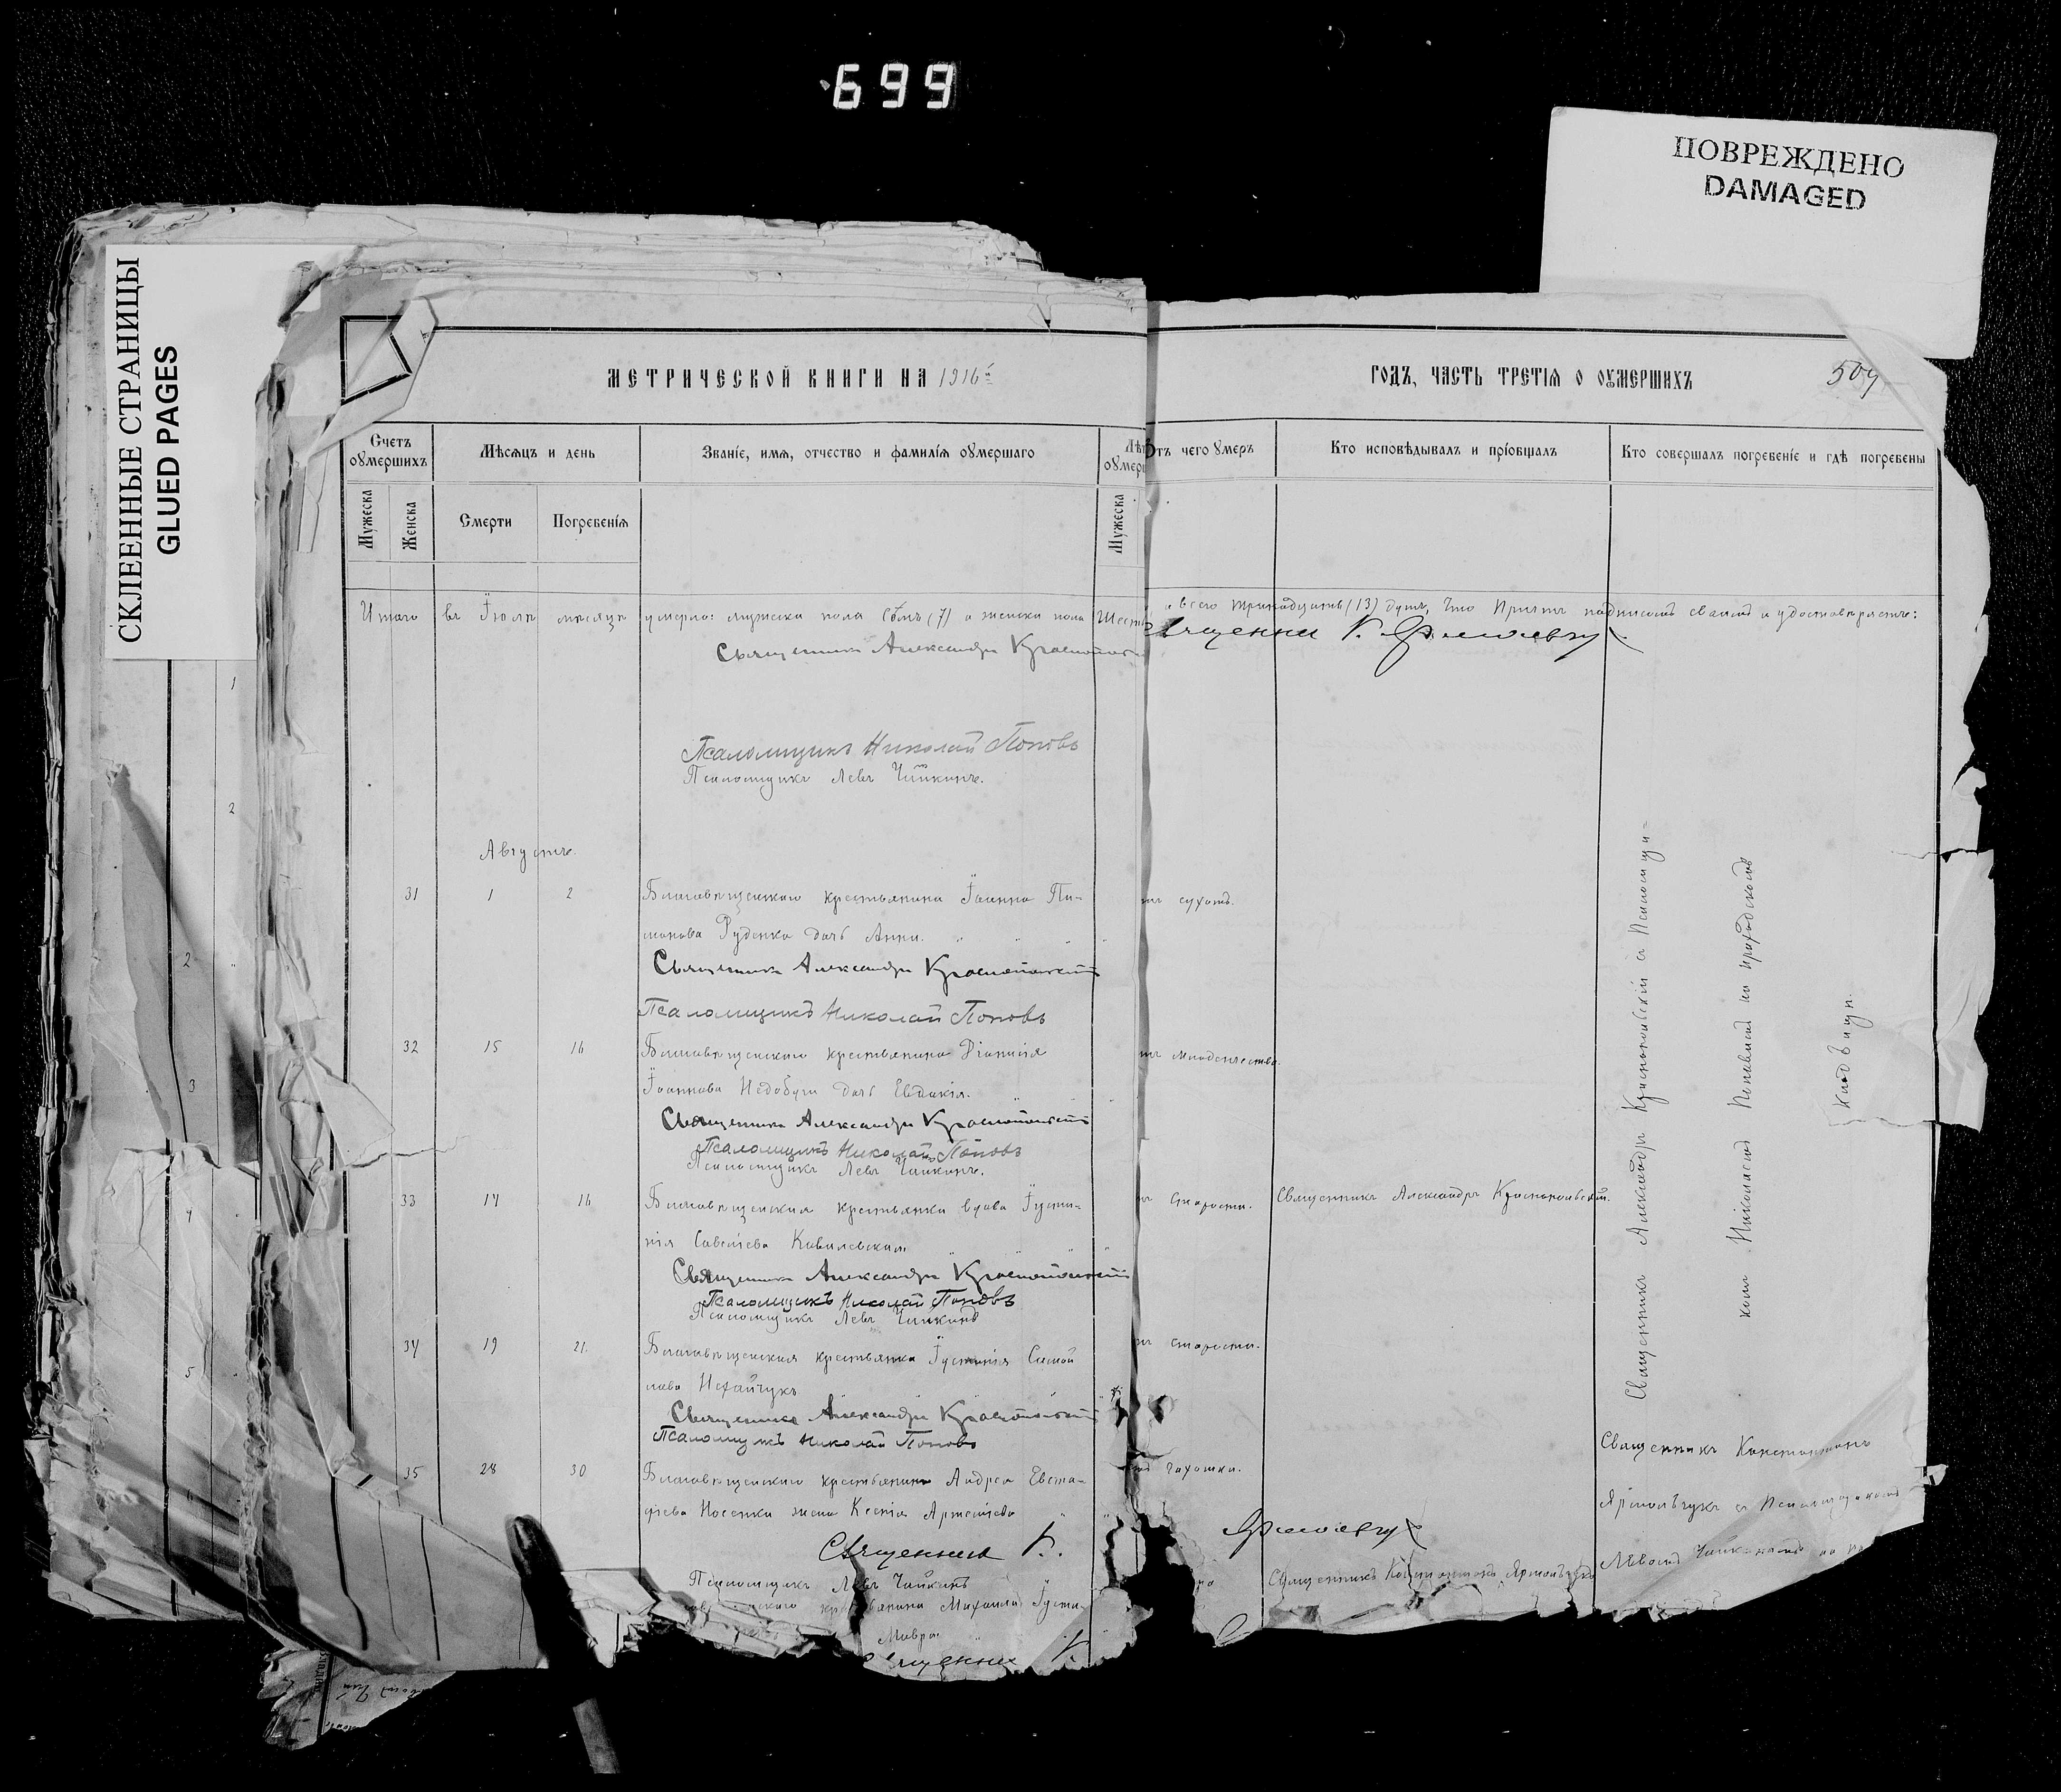 699
ПОВРЕЖДЕНО
DAMAGED
СКЛЕЕННЫЕ СТРАНИЦЫ
GLUED PAGES
МЕТРИЧЕСКОЙ КНИГИ НА 1916
ГОДЪ, ЧАСТЬ ТРЕТІЯ О ОУМЕРШИХЪ
509
Счетъ оумершихъ
Мѣсяцъ и день
Званіе, имя, отчество и фамилія оумершаго
Лѣ
оумер
Отъ чего умеръ
Кто исповѣдывалъ и пріобщалъ
Кто совершалъ погребеніе и гдѣ погребены
Мужеска
Женска
Смерти
Погребенія
Мужеска
Итого въ Іюлѣ мѣсяцѣ умерло: мужеска пола семь (7) а женска пола шесть, а всего тринадцать (13) душъ, что причтъ подписомъ своимъ и удостовѣряетъ:
Священникъ Александръ
Священникъ К. Ярмольчукъ
Псаломщикъ Николай Поповъ
Псаломщикъ Левъ Чайкинъ.
Августъ.
31 1 2 Благовѣщенскаго крестьянина Іоанна Пи-
монова Руденко дочь Анна.
отъ сухотъ.
Священникъ Александръ Краснопольскій
Псаломщикъ Николай Поповъ
32 15 16 Благовѣщенскаго крестьянина Діонисія
Іоаннова Недобуги дочь Евдокія.
отъ младенчества.
Священникъ Александръ Краснопольскій
Псаломщикъ Николай Поповъ
Псаломщикъ Левъ Чайкинъ.
33 14 16 Благовѣщенская крестьянка вдова Іусти-
нія Савельева Ковалевская.
отъ старости.
Священникъ Александръ Краснопольскій.
Священникъ Александръ Краснопольскій
Псаломщикъ Николай Поповъ
Псаломщикъ Левъ Чайкинъ
34 19 21 Благовѣщенская крестьянка Іустинія Самой
лова
отъ старости.
Священникъ Александръ Краснопольскій
Псаломщикъ Николай Поповъ
35 28 30 Благовѣщенскаго крестьянина Андрея Евста-
фіева Носенка жена Ксенія Артеміева
отъ чахотки.
Священникъ К. Ярмольчукъ
Псаломщикъ Левъ Чайкинъ
крестьянина Михаила Іусти-
Мавра
Священникъ К.
Священникъ Константинъ Ярмольчукъ
Священникъ Александръ Краснопольскій съ Псаломщи-
комъ Николаемъ Поповымъ на приходскомъ
кладбищѣ.
Священникъ Константинъ
Ярмольчукъ съ Псаломщикомъ
Львомъ Чайкинымъ на
1
2
2
3
4
5